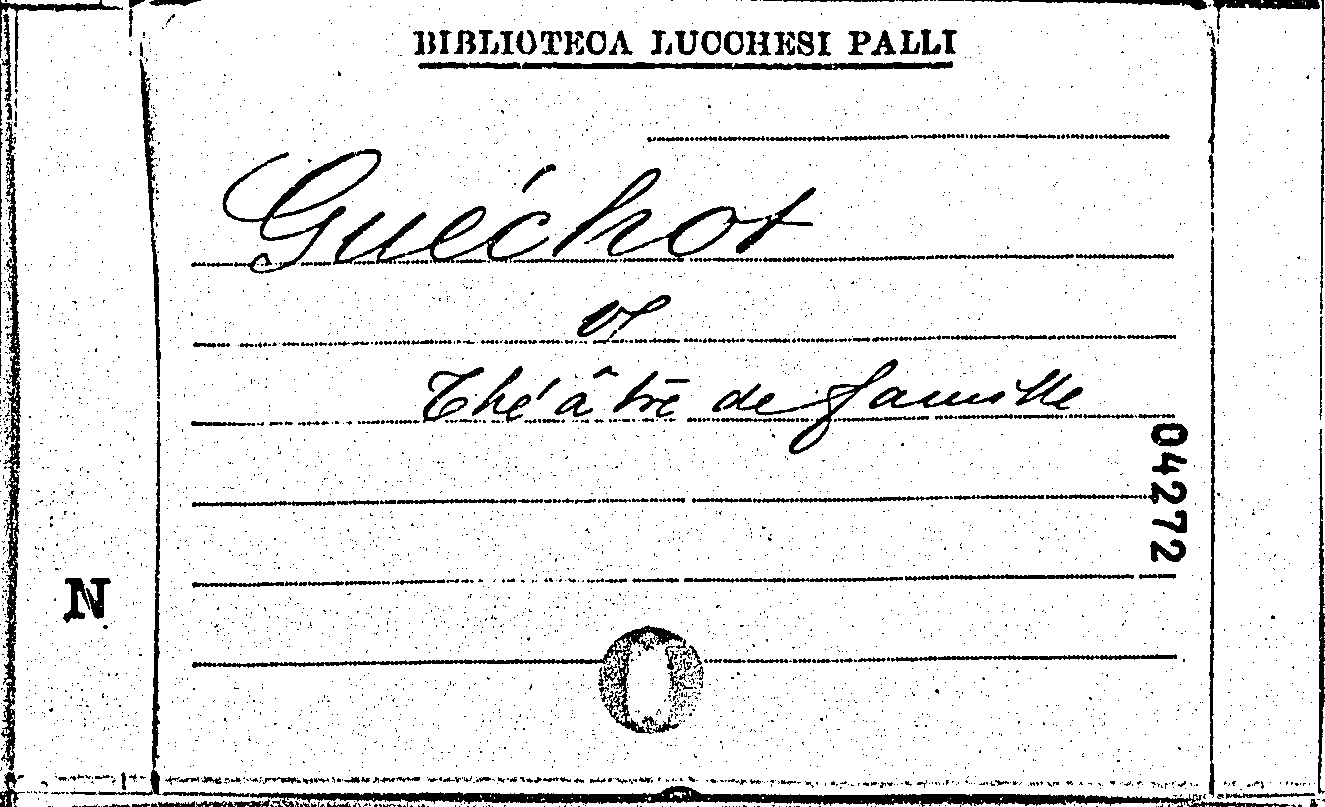 BIBLIOTECA LUCCHESI PALLI
Guéchot
v
Théâtre de famille
04272
N